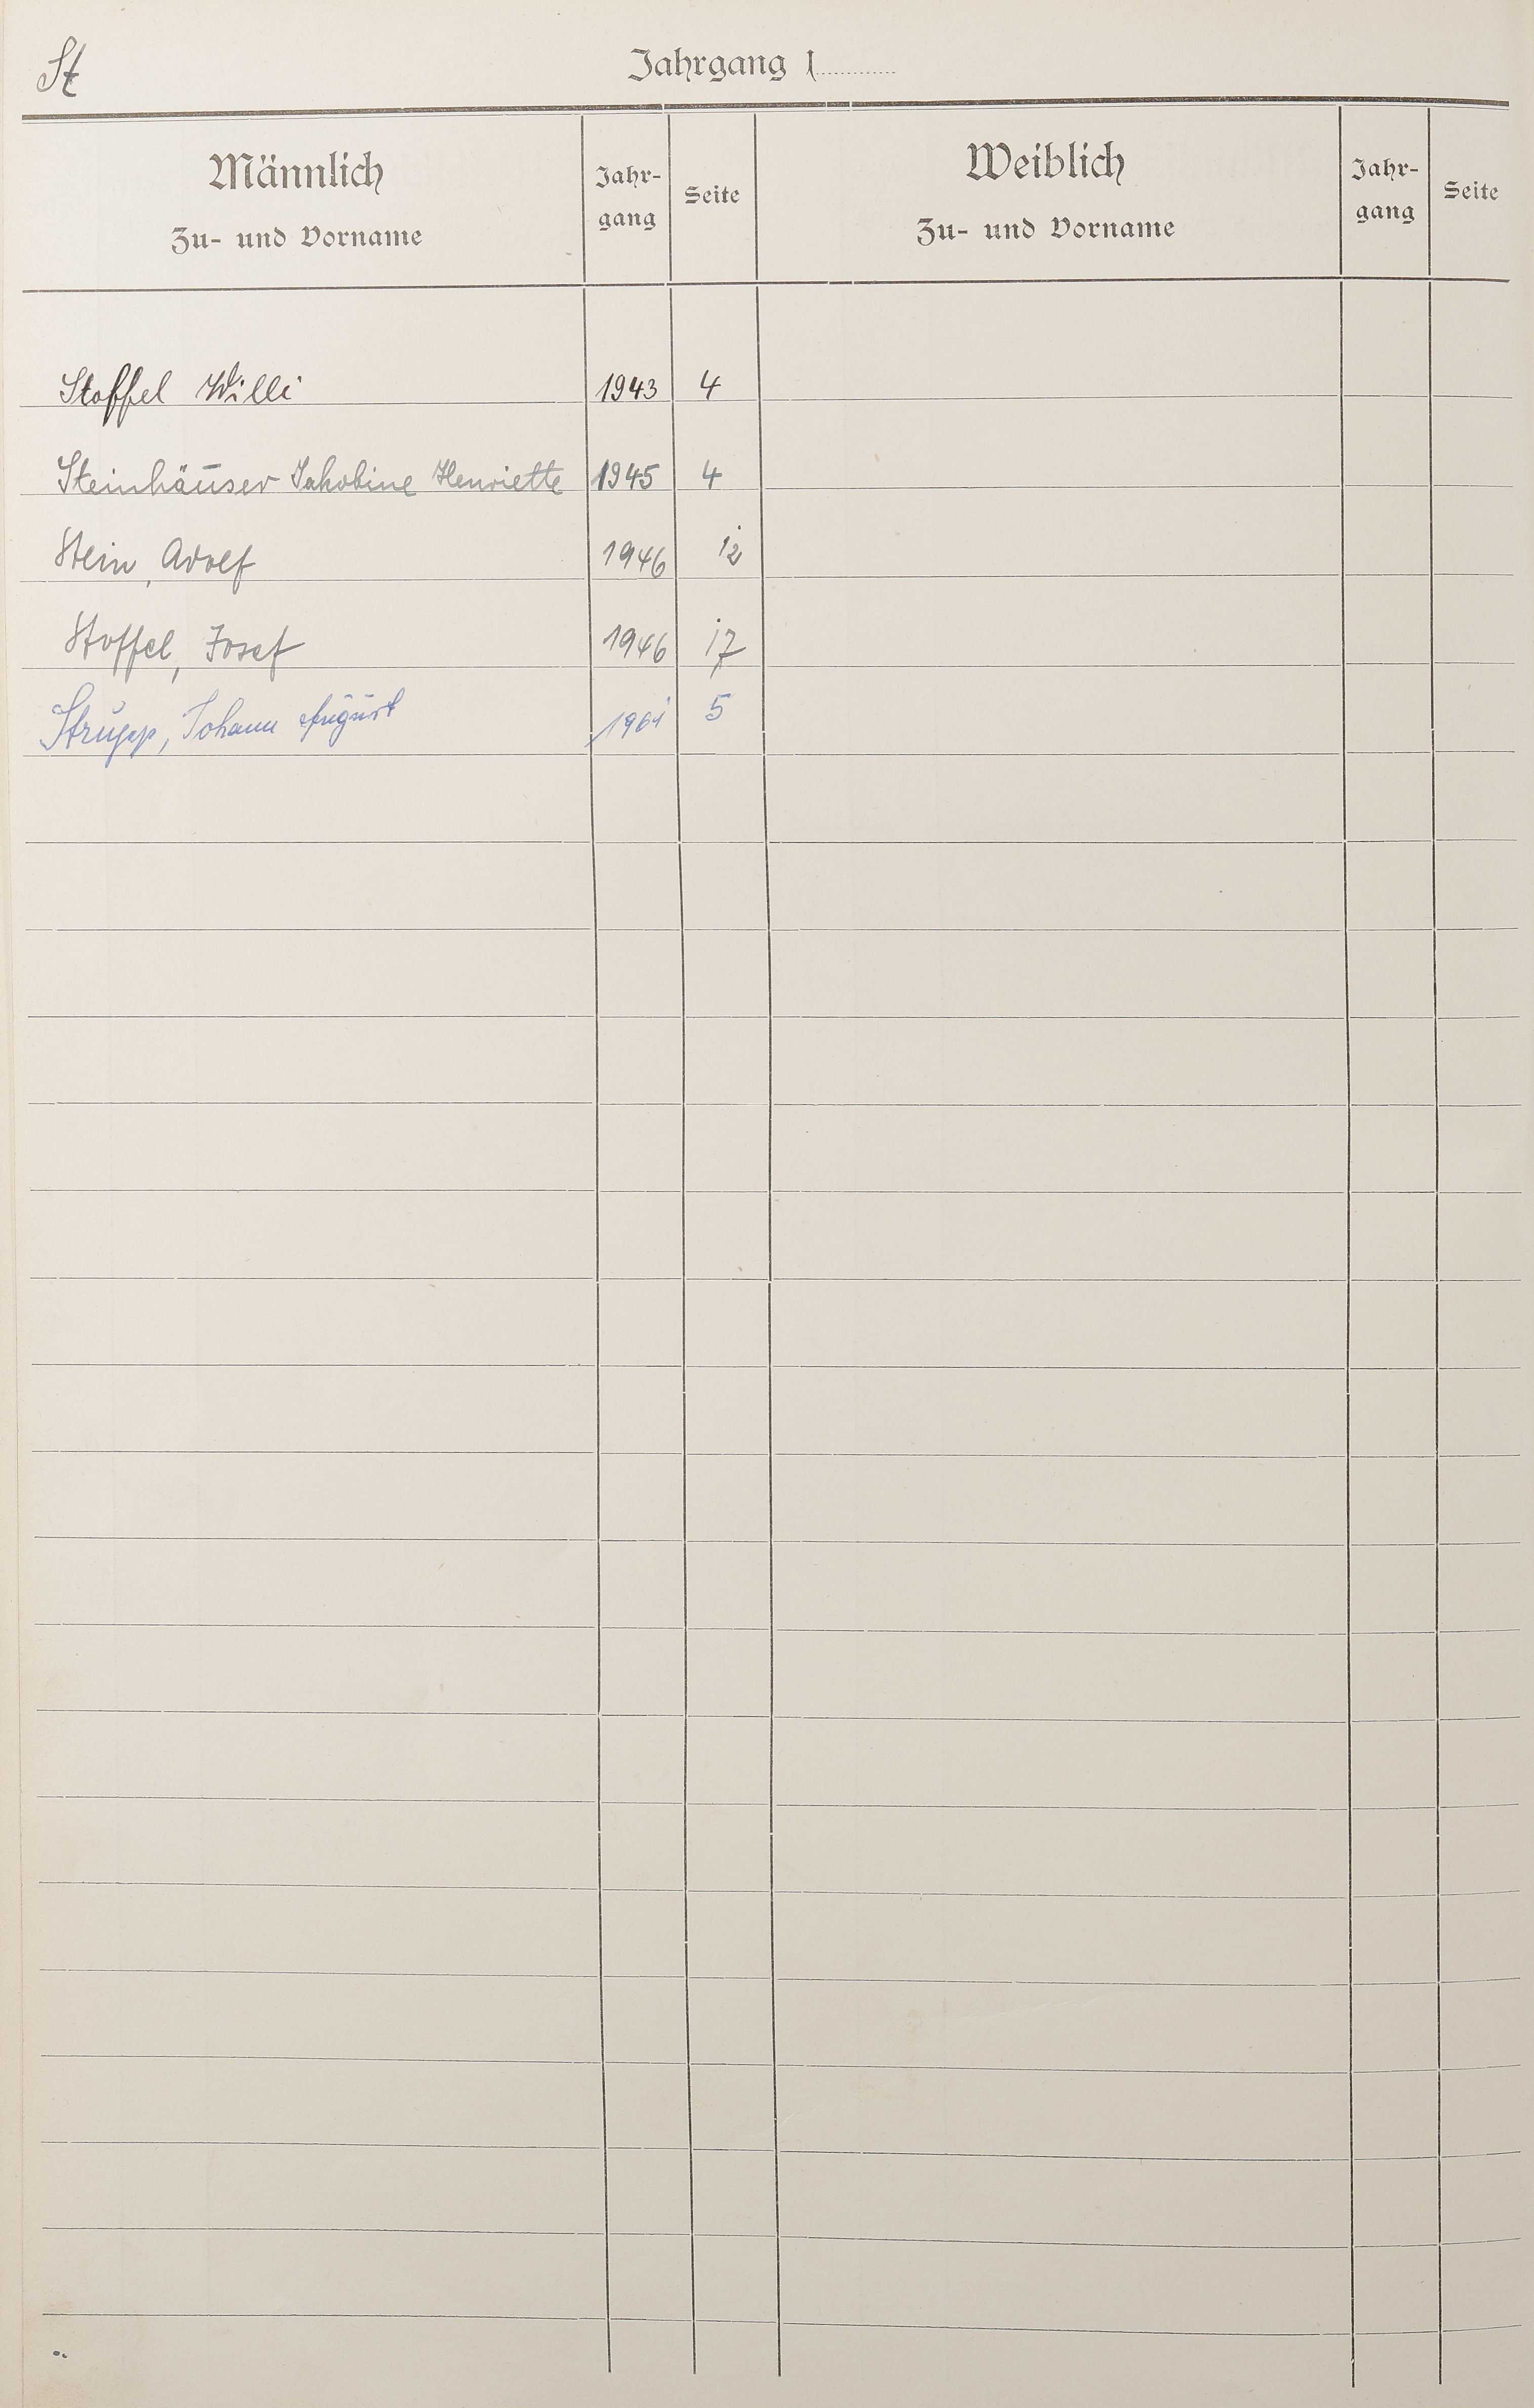 St
Jahrgang 1
Männlich
Zu- und Vorname
Jahr-
gang
Seite
Weiblich
Zu- und Vorname
Jahr-
gang
Seite
Stoffel Willi 1943 4
Steinhäuser Jakobine Henriette 1945 4
Stein, Adolf 1946 12
Stoffel, Josef 1946 17
Strupp, Johann August 1961 5